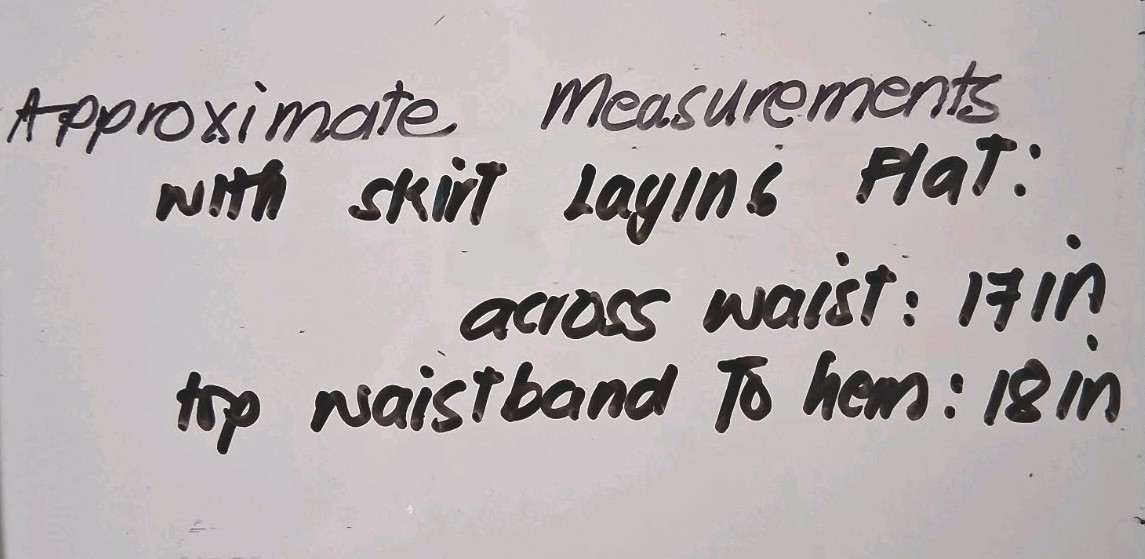 Approximate Measurements
with skirt Laying Flat:
across waist: 17in
top waistband To hem: 18in